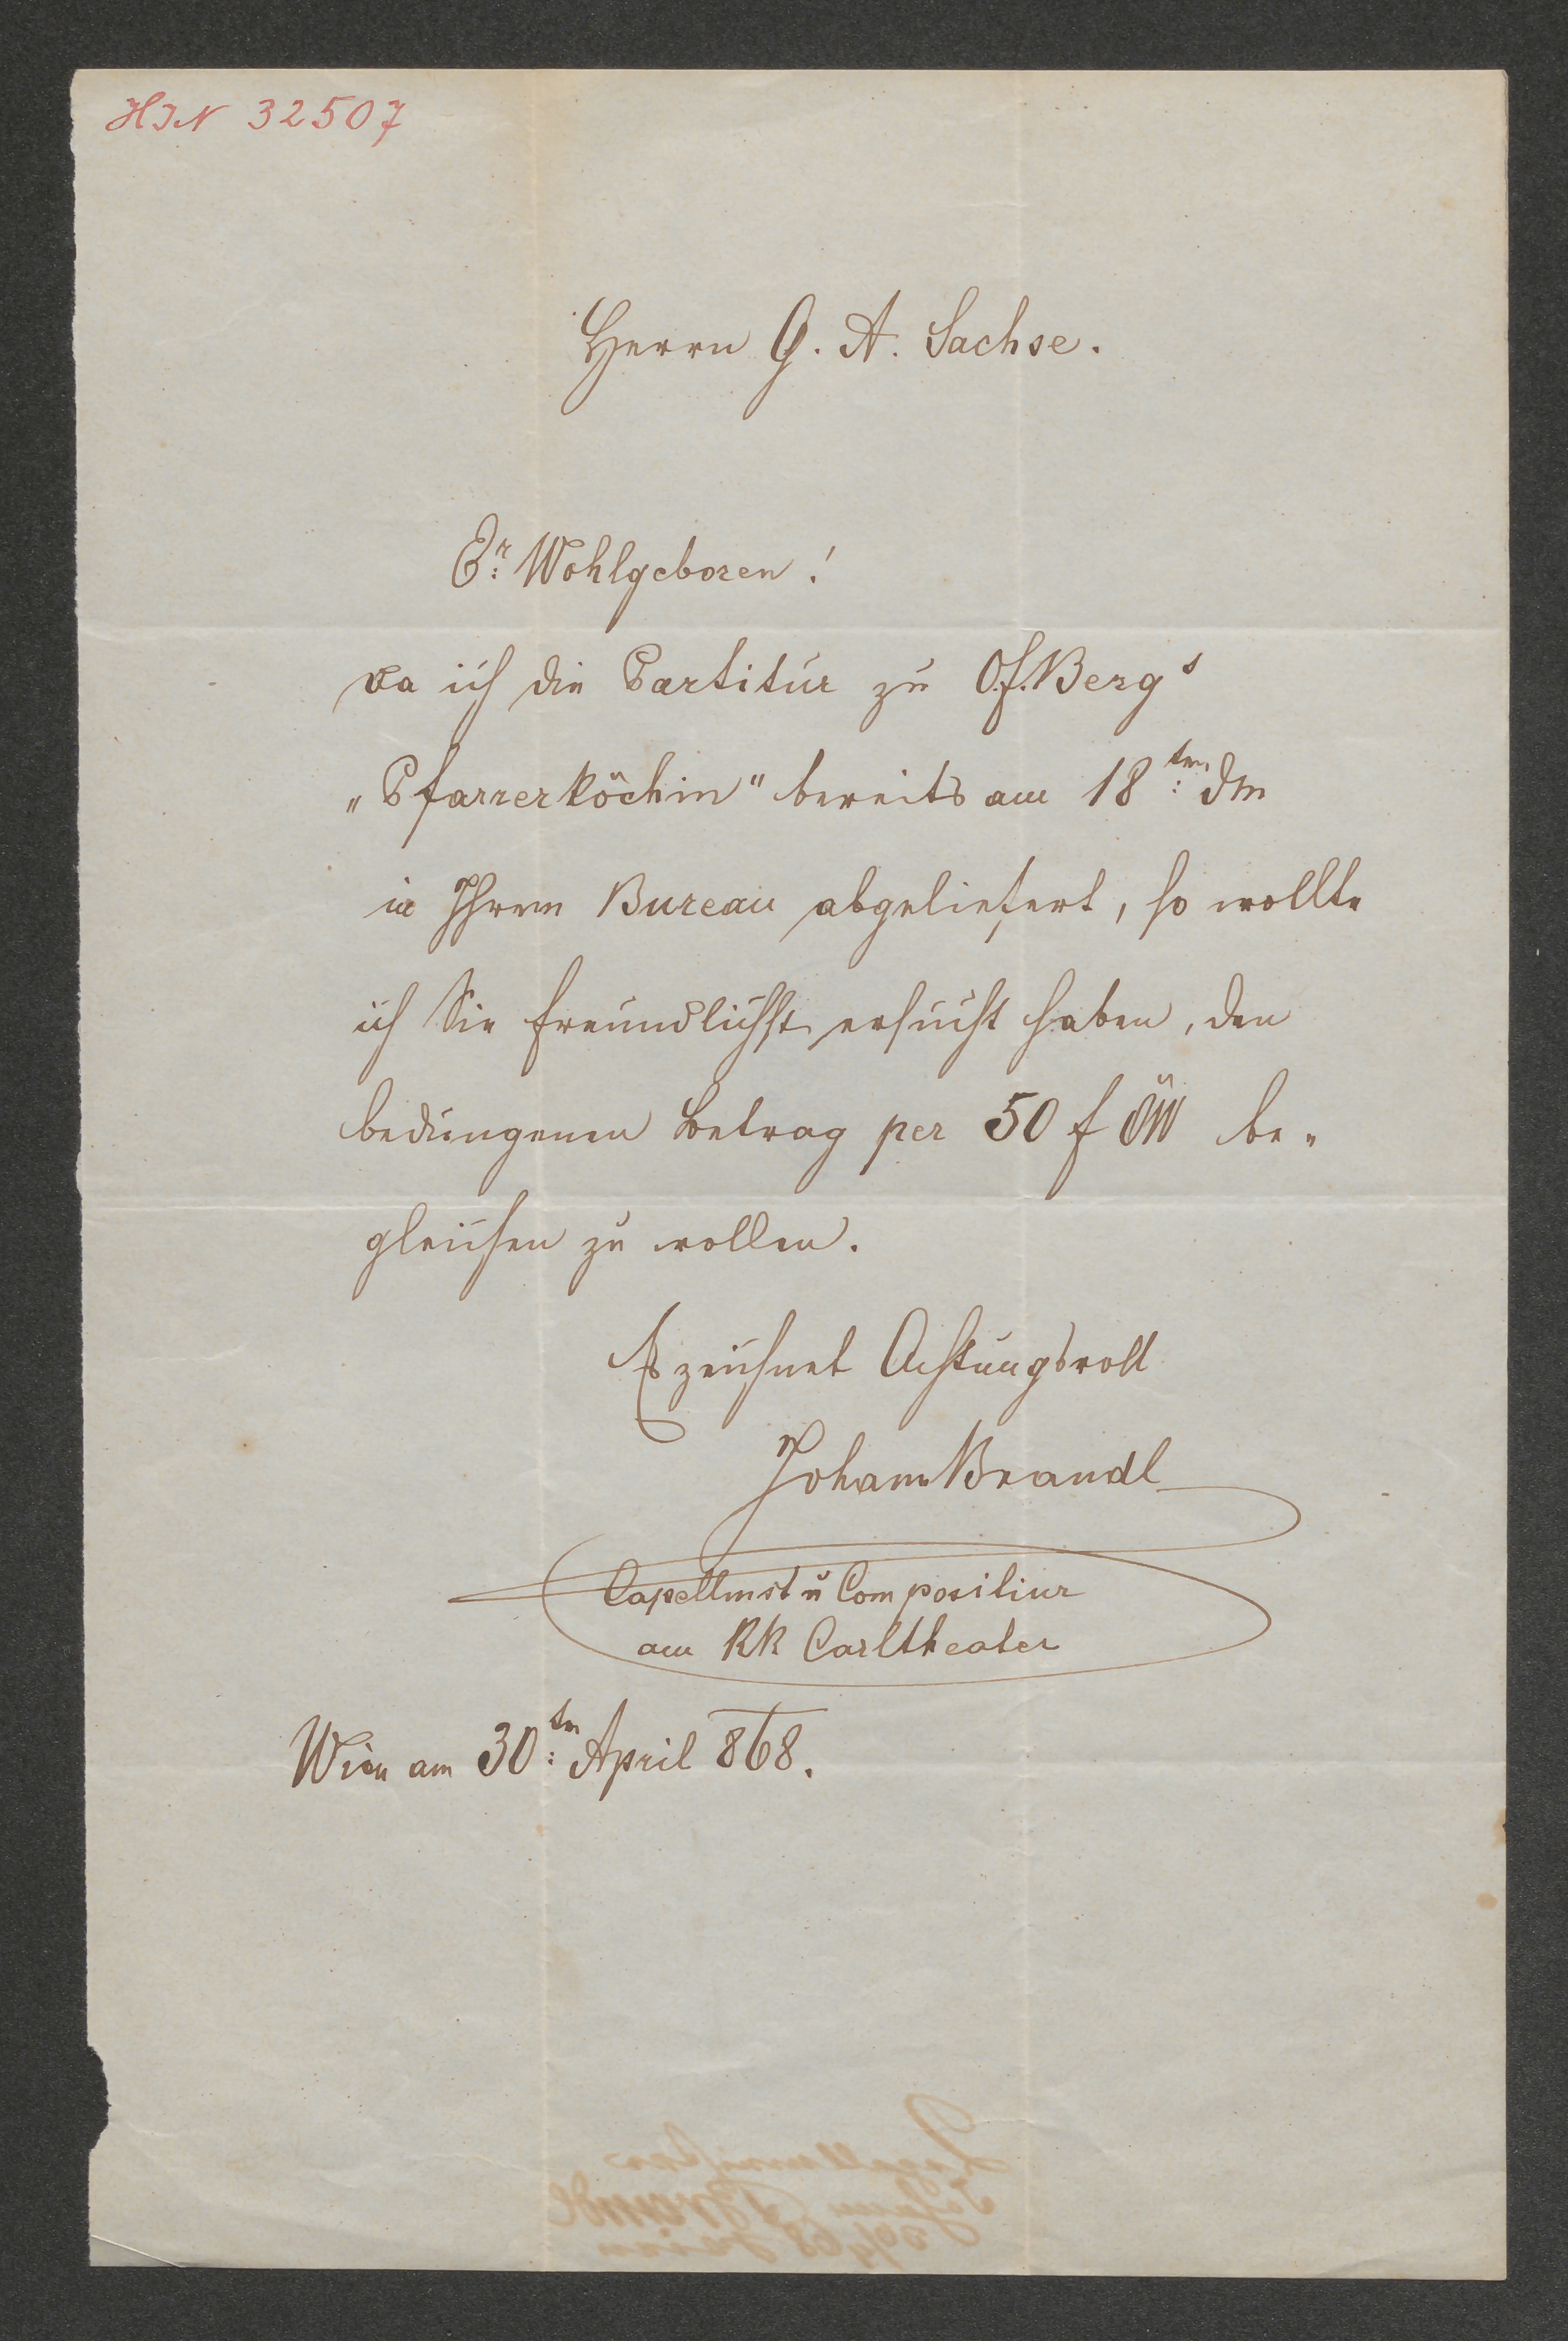 HIN 32507
Herrn G. A. Sachse.
Er: Wohlgeboren!
Da ich die Partitur zu O.F. Bergs
„Pfarrerköchin" bereits am 18ten: dM
in Ihrem Bureau abgeliefert, so wollte
ich Sie freundlichst ersucht haben, den
bedungenen Betrag per 50 f ÖW be-
gleichen zu wollen.
Es zeichnet Achtungsvoll
Johann Brandl
Capellmst u Compositeur
am KK Carltheater
Wien am 30ten: April 868.